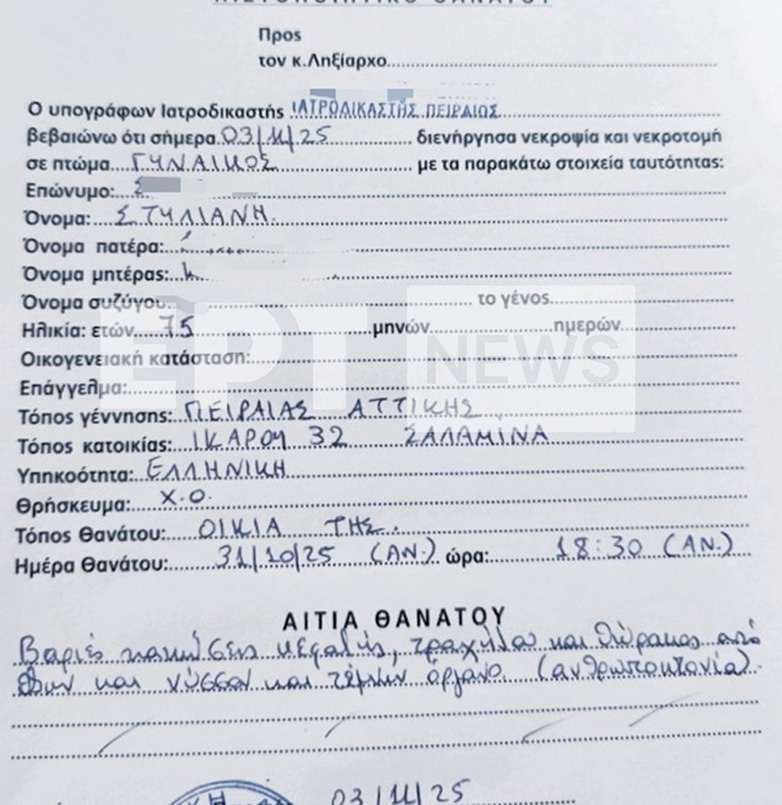 ΠΙΣΤΟΠΟΙΗΤΙΚΟ ΘΑΝΑΤΟΥ
Προς
τον κ.Ληξίαρχο
Ο υπογράφων Ιατροδικαστής ΙΑΤΡΟΔΙΚΑΣΤΗΣ ΠΕΙΡΑΙΩΣ
βεβαιώνω ότι σήμερα 03/11/25 διενήργησα νεκροψία και νεκροτομή
σε πτώμα ΓΥΝΑΙΚΟΣ με τα παρακάτω στοιχεία ταυτότητας:
Επώνυμο: Σ
Όνομα: ΣΤΥΛΙΑΝΗ
Όνομα πατέρα:
Όνομα μητέρας:
Όνομα συζύγου το γένος
Ηλικία: ετών 75 μηνών ημερών
Οικογενειακή κατάσταση:
Επάγγελμα:
ΕΡΤ NEWS
Τόπος γέννησης: ΠΕΙΡΑΙΑΣ ΑΤΤΙΚΗΣ
Τόπος κατοικίας: ΙΚΑΡΟΥ 32 ΣΑΛΑΜΙΝΑ
Υπηκοότητα: ΕΛΛΗΝΙΚΗ
Θρήσκευμα: Χ.Ο.
Τόπος θανάτου: ΟΙΚΙΑ ΤΗΣ.
Ημέρα θανάτου: 31/10/25 (ΑΝ.) ώρα: 18:30 (ΑΝ.)
ΑΙΤΙΑ ΘΑΝΑΤΟΥ
Βαριές κακώσεις κεφαλής, τραχήλου και θώρακος από
θλων και νύσσον και τέμνον όργανο (ανθρωποκτονία).
03/11/25